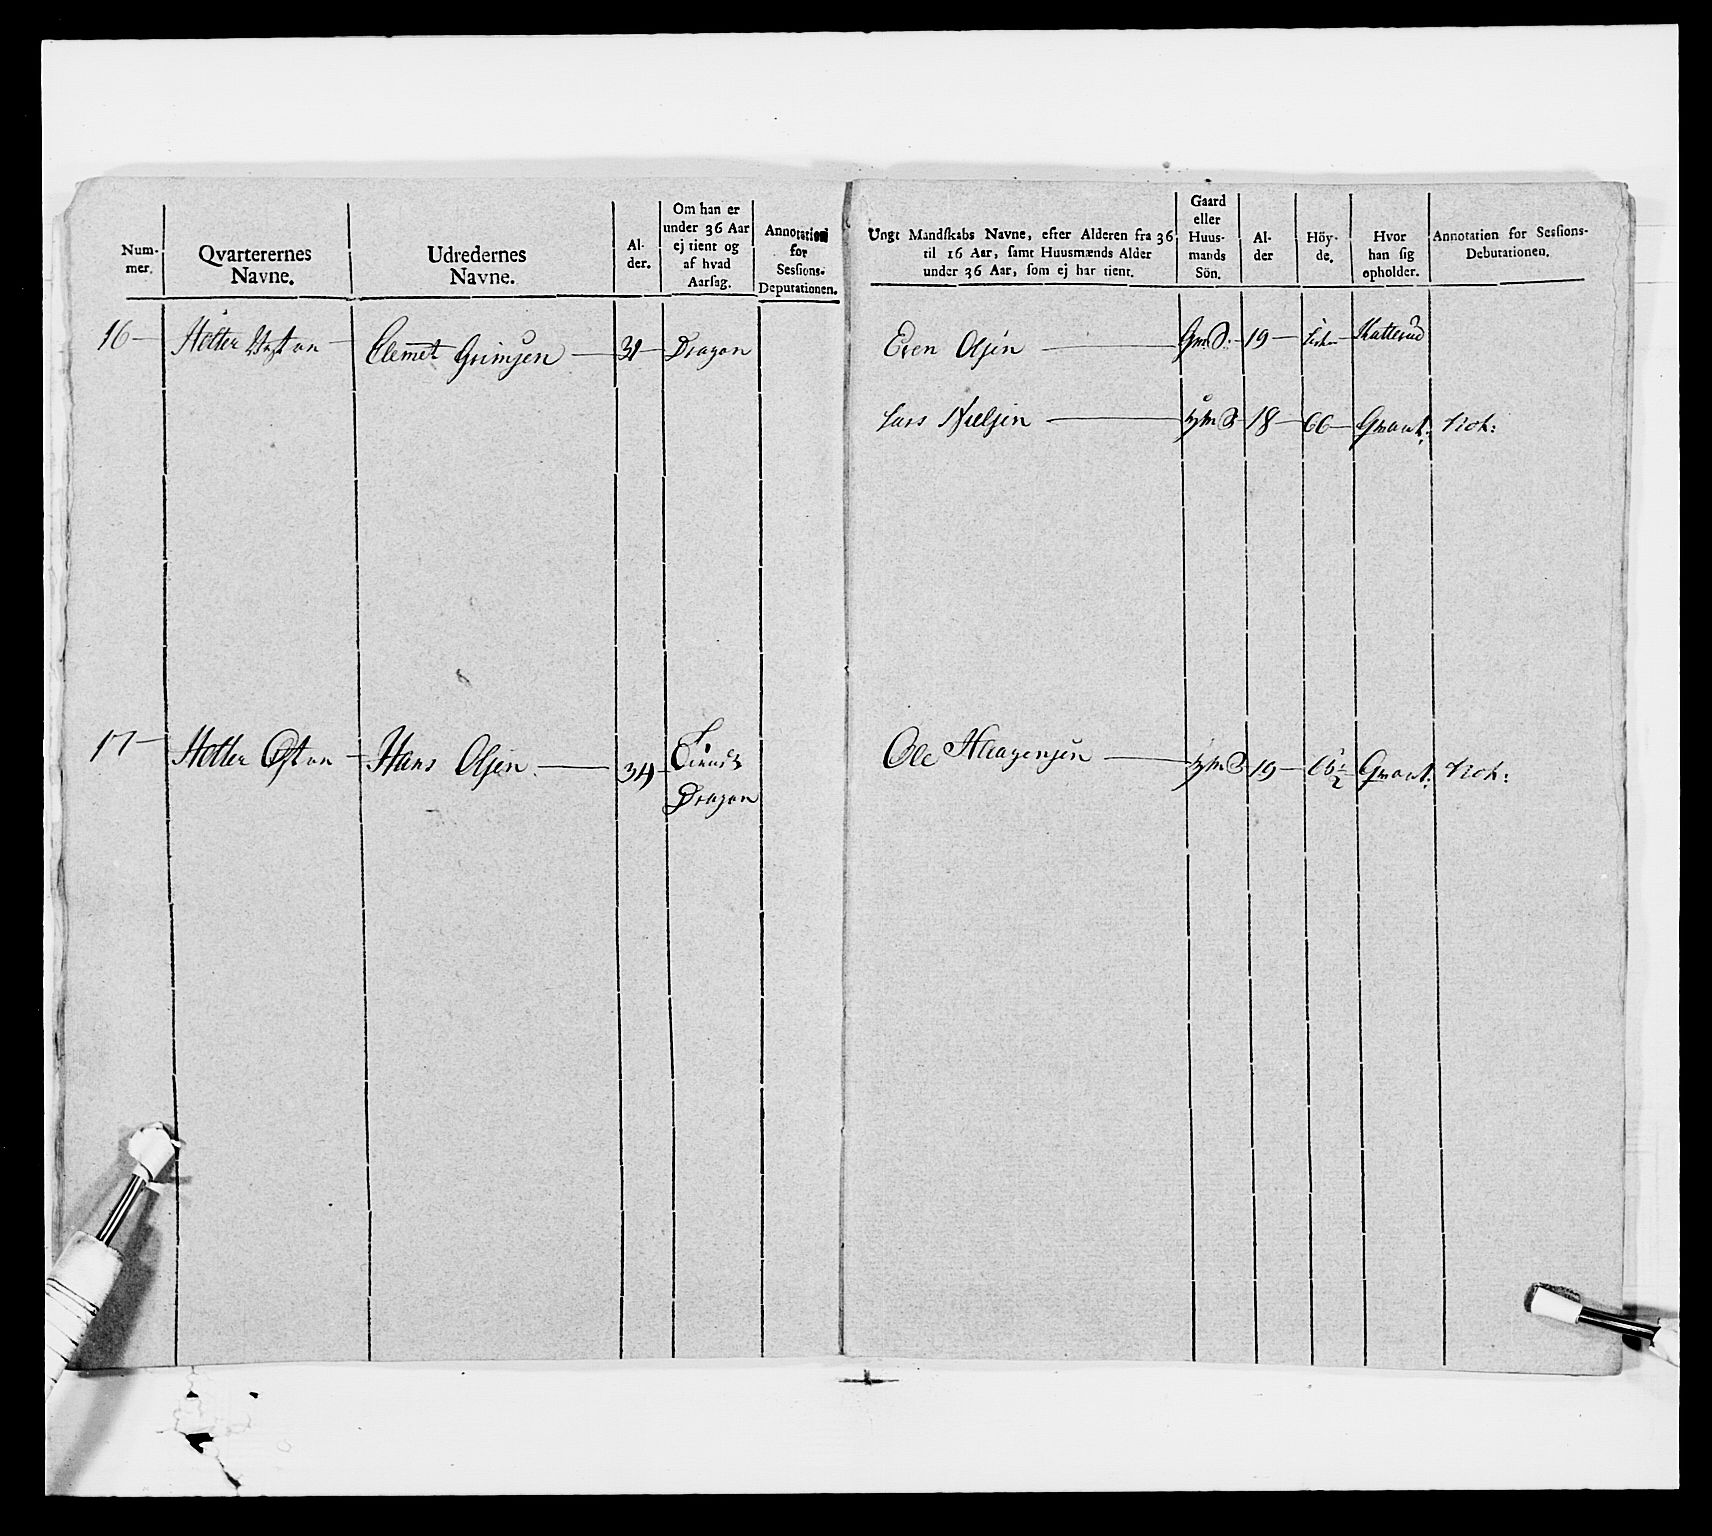 Num-
mer.
Qvarterernes
Navne.
Udredernes
Navne.
Al-
der.
Om han er
under 36 Aar
ej tient og
af hvad
Aarsag.
Annotation
for
Sessions-
Deputationen.
Ungt Mandskabs Navne, efter Alderen fra 36
til 16 Aar, samt Huusmænds Alder
under 36 Aar, som ej har tient.
Gaard
eller
Huus-
mands
Sön.
Al-
der
Höy-
de.
Hvor
han sig
opholder.
Annotation for Sessions-
Debutationen.
16 — Holter Vestan — Clemet Grimsen — 31 — Dragon
Even Olsen — 19 —
Lars Nielsen — 18 — 66 —
17 — Holter Østan — Hans Olsen — 34
Dragon
Ole Haagensen — 19 —